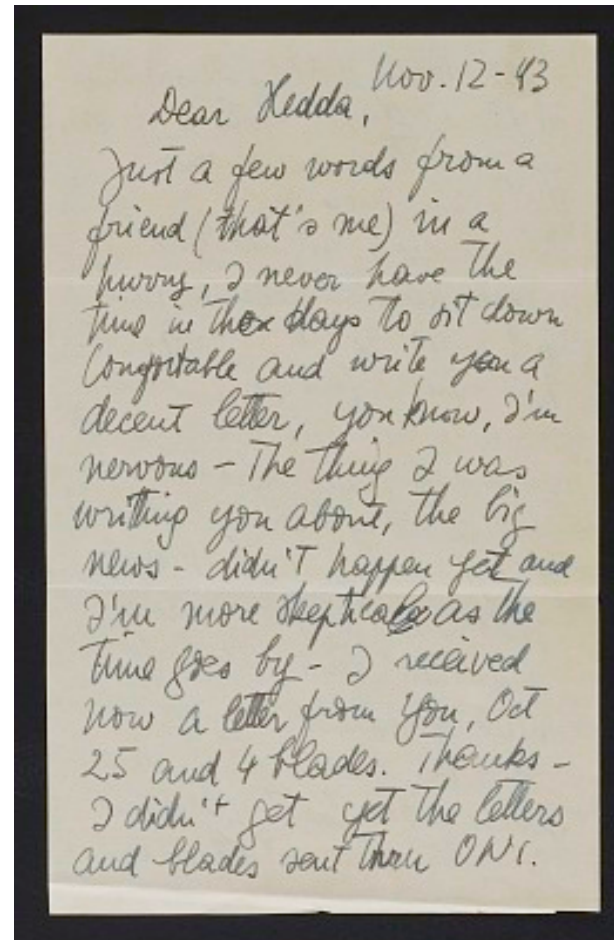 Nov. 12-43
Dear Hedda,
Just a few words from a
friend (that's me) in a
hurry, I never have the
time in these days to sit down
comfortable and write you a
decent letter, you know, I'm
nervous – The thing I was
writing you about, the big
news – didn't happen yet and
I'm more skeptical as the
time goes by – I received
now a letter from you, Oct
25 and 4 blades. Thanks –
I didn't get yet the letters
and blades sent thru ONI.